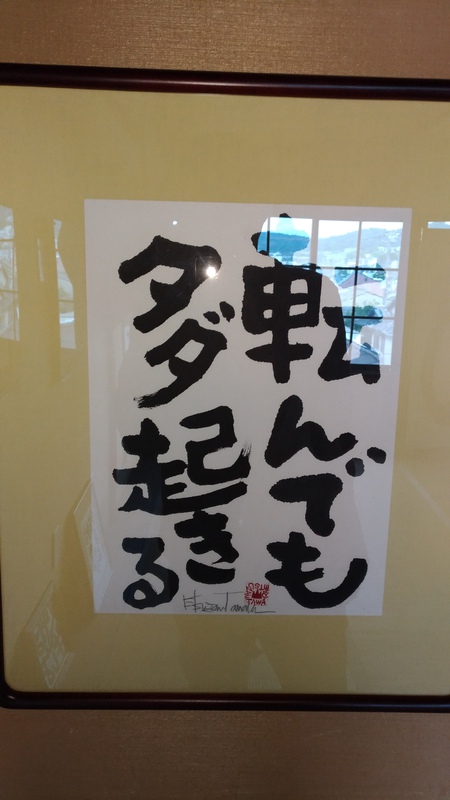 転んでも
タダ起きる